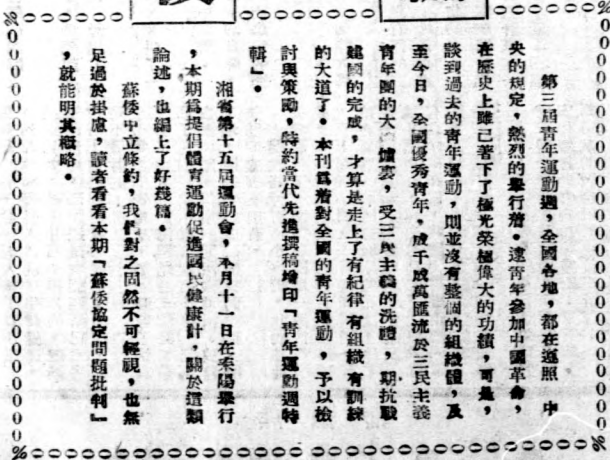 第三屆青年運動週，全國各地，都在遵照　中
央的規定，熱烈的舉行着。遠青年參加中國革命，
在歷史上雖已著下了極光榮極偉大的功績，可是，
談到過去的青年運動，則並沒有整個的組織體，及
至今日，全國優秀青年，成千成萬匯流於三民主義
青年團的大　爐裏，受三民主義的洗禮　，期抗戰
建國的完成，才算是走上了有紀律　有組織　有訓練
的大道了。本刊爲着對全國的青年運動　，予以檢
討與策勵，特約當代先進撰稿增印「青年運動週特
輯」。
湘省第十五屆運動會，本月十一日在耒陽舉行
，本期爲提倡體育運動促進國民健康計，關於這類
論述，也編上了好幾篇。
蘇倭中立條約，我們對之固然不可輕視，也無
足過於掛慮，讀者看看本期「蘇倭協定問題批判」
，就能明其概略。